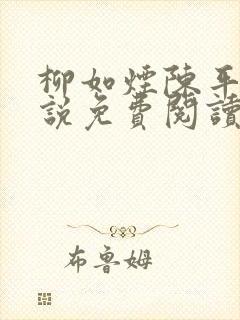 柳如煙陳平
說免費閱讀
布魯姆